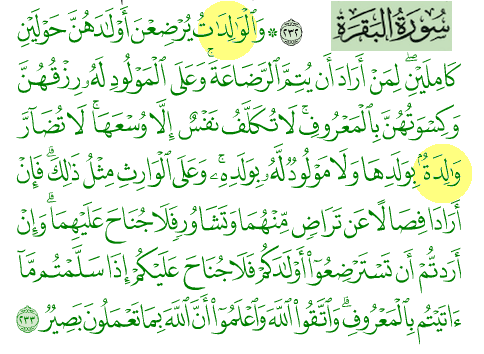 سُورَةُ البَقَرَةِ
۝٢٣٢ ۞ وَٱلْوَٰلِدَٰتُ يُرْضِعْنَ أَوْلَٰدَهُنَّ حَوْلَيْنِ
كَامِلَيْنِ ۖ لِمَنْ أَرَادَ أَن يُتِمَّ ٱلرَّضَاعَةَ ۚ وَعَلَى ٱلْمَوْلُودِ لَهُۥ رِزْقُهُنَّ
وَكِسْوَتُهُنَّ بِٱلْمَعْرُوفِ ۚ لَا تُكَلَّفُ نَفْسٌ إِلَّا وُسْعَهَا ۚ لَا تُضَآرَّ
وَٰلِدَةٌۢ بِوَلَدِهَا وَلَا مَوْلُودٌ لَّهُۥ بِوَلَدِهِۦ ۚ وَعَلَى ٱلْوَارِثِ مِثْلُ ذَٰلِكَ ۗ فَإِنْ
أَرَادَا فِصَالًا عَن تَرَاضٍ مِّنْهُمَا وَتَشَاوُرٍ فَلَا جُنَاحَ عَلَيْهِمَا ۗ وَإِنْ
أَرَدتُّمْ أَن تَسْتَرْضِعُوٓا۟ أَوْلَٰدَكُمْ فَلَا جُنَاحَ عَلَيْكُمْ إِذَا سَلَّمْتُم مَّآ
ءَاتَيْتُم بِٱلْمَعْرُوفِ ۗ وَٱتَّقُوا۟ ٱللَّهَ وَٱعْلَمُوٓا۟ أَنَّ ٱللَّهَ بِمَا تَعْمَلُونَ بَصِيرٌ ۝٢٣٣